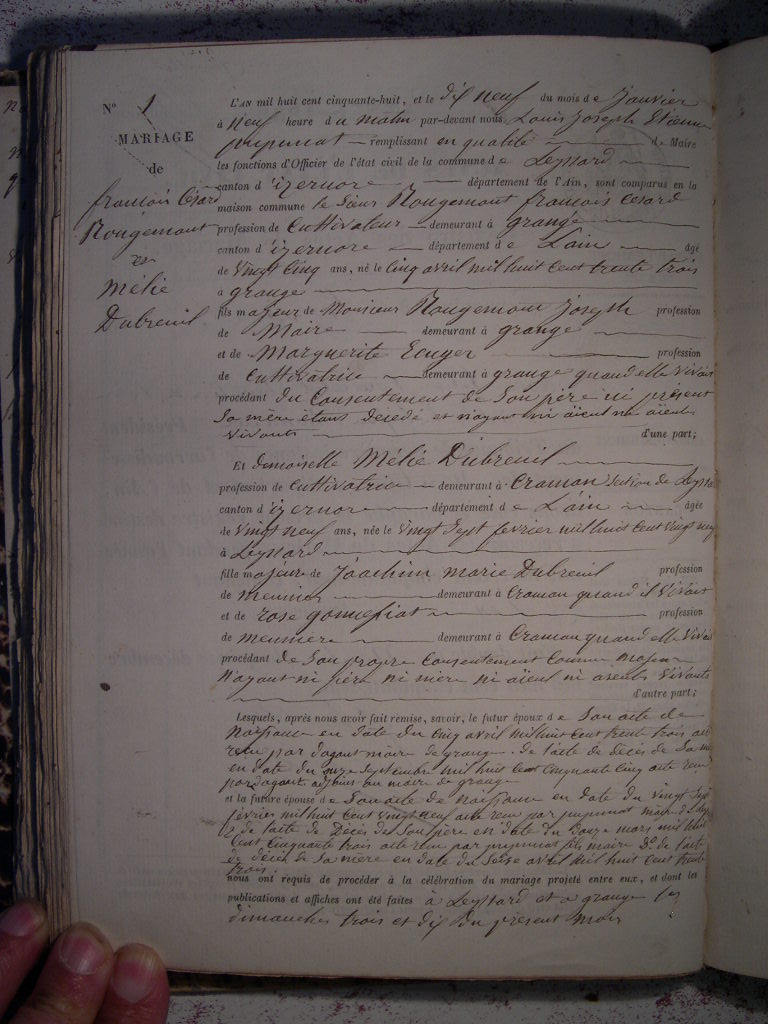 N° 1
MARIAGE
de
françois César
Rougemont
et
Mélie
Dubreuil
L'AN mil huit cent cinquante-huit, et le dix neuf du mois de Janvier
à neuf heure du matin par-devant nous Louis Joseph Etienne
pupunat remplissant en qualité de Maire
les fonctions d'Officier de l'état civil de la commune de Leyssard
canton d'izernore département de l'Ain, sont comparus en la
maison commune le Sieur Rougemont françois César
profession de Cultivateur demeurant à grange
canton d'izernore département de Lain âgé
de Vingt Cinq ans, né le Cinq avril mil huit Cent trente trois
à grange
fils majeur de Monsieur Rougemont Joseph profession
de Maire demeurant à grange
et de Marguerite Ecuyer profession
de Cultivatrice demeurant à grange quand elle vivait
procédant du Consentement de Son père ici présent
Sa mère étant décédé et n'ayant ni aïeul ni aïeules
vivants d'une part;
Et demoiselle Mélie Dubreuil
profession de Cultivatrice demeurant à Craman Section de Leyssa
canton d'izernore département de L'ain âgée
de vingt neuf ans, née le vingt Sept février mil huit Cent vingt neuf
à Leyssard
fille majeure de Joachim marie Dubreuil profession
de meunier demeurant à Craman quand il vivait
et de rose profession
de meunière demeurant à Craman quand elle vivait
procédant de Son propre Consentement Comme majeure
N'ayant ni père ni mère ni aïeul ni aïeules vivants
d'autre part;
Lesquels, après nous avoir fait remise, savoir, le futur époux de Son acte de
naissance en date du Cinq avril mil huit Cent trente trois acte
reçu par dagant maire de grange. de l'acte de décès de Sa m
en date du onze Septembre mil huit Cent Cinquante Cinq acte reçu
par dagant maire de grange
et la future épouse de Son acte de naissance en date du vingt Sept
février mil huit Cent vingt neuf acte reçu par pupunat maire de Leys
de l'acte de Décès de Son père en date du Douze mars mil huit
Cent Cinquante trois acte reçu par pupunat fils maire de l'acte
de décès de Sa mère en date du Seise avril mil huit Cent trente
trois.
nous ont requis de procéder à la célébration du mariage projeté entre eux, et dont les
publications et affiches ont été faites à Leyssard et à grange les
dimanches trois et dix Du présent mois